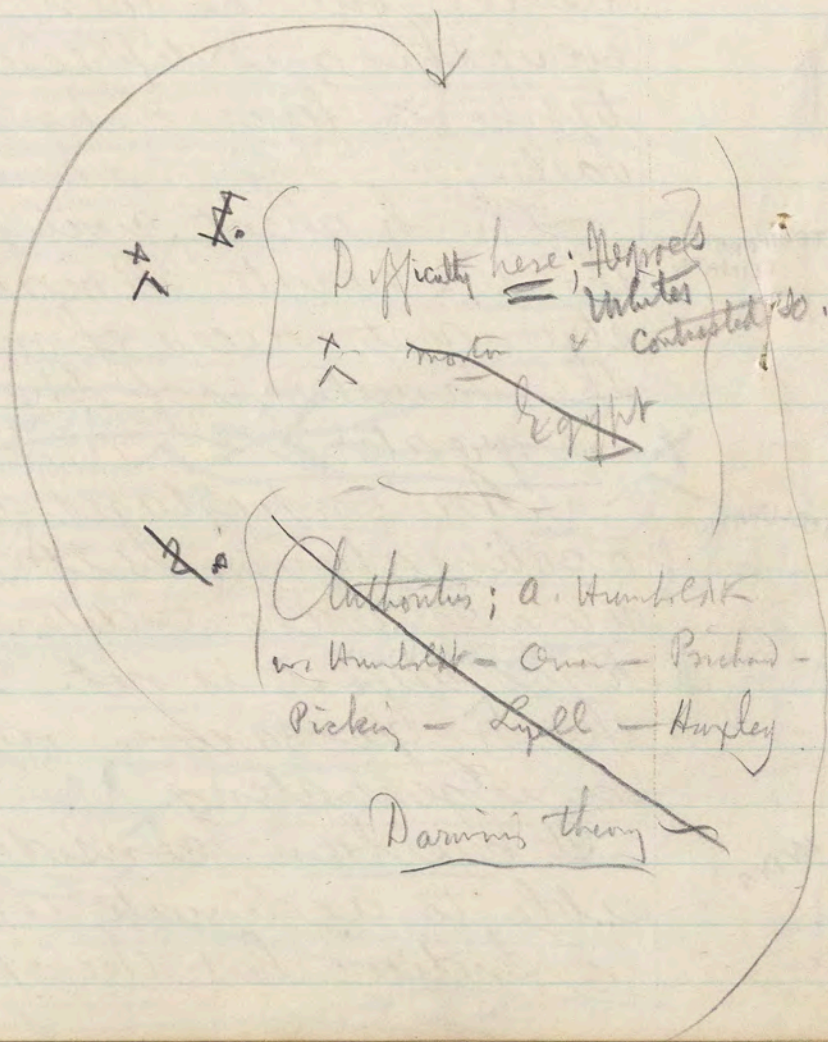 Difficulty here; Negroes
Whites
Morton & contrasted so.
Egypt
2.
Authorities; A. Humboldt
W. Humboldt – Owen – Prichard –
Pickering – Lyell – Huxley
Darwin's theory